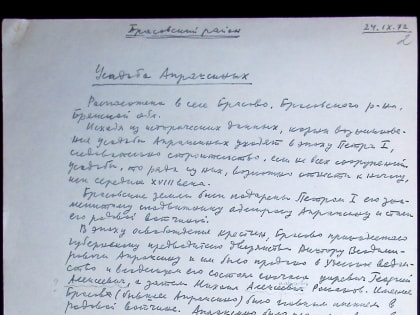 Брасовский район
24.IX.72
2
Усадьба Апраксиных
Расположена в селе Брасово, Брасовского р-на,
Брянской обл.
Исходя из исторических данных, корни возникнове-
ния усадьбы Апраксиных уходят в эпоху Петра I,
следовательно строительство, если не всех сооружений
усадьбы, то ряда из них, возможно отнести к началу,
или середине XVIII века.
Брасовские земли были подарены Петром I его зна-
менитому сподвижнику адмиралу Апраксину и стали
его родовой вотчиной.
В эпоху освобождения крестьян, Брасово принадлежало
губернскому предводителю дворянства Виктору Владими-
ровичу Апраксину и им было продано в Удельное ведом-
ство и владельцем его состоял сначала царевич Георгий
Алексеевич, а затем Михаил Алексеевич Романов. Имение
Брасово (бывшее Апраксино) было главным имением в
родовой вотчине. Апраксино было